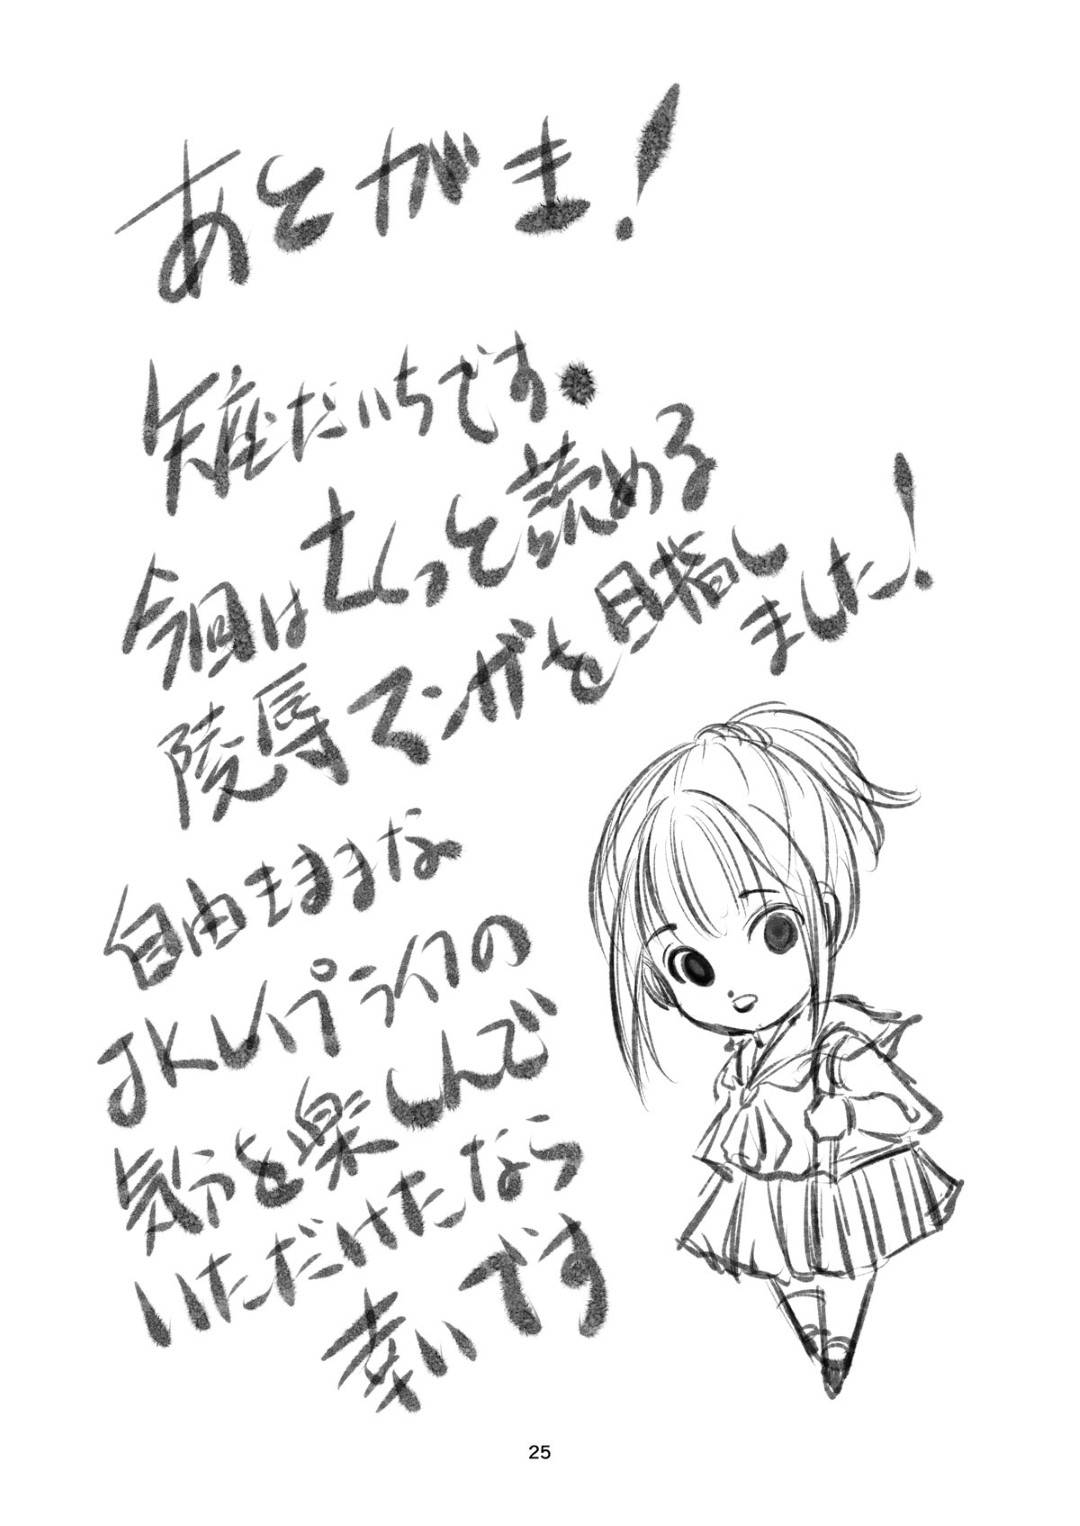 あとがき!
矢座だいちです。
今回はさくっと読める
陵辱マンガを目指し
ました!
自由きままな
JKレイプライフの
気分を楽しんで
いただけたなら
幸いです
25